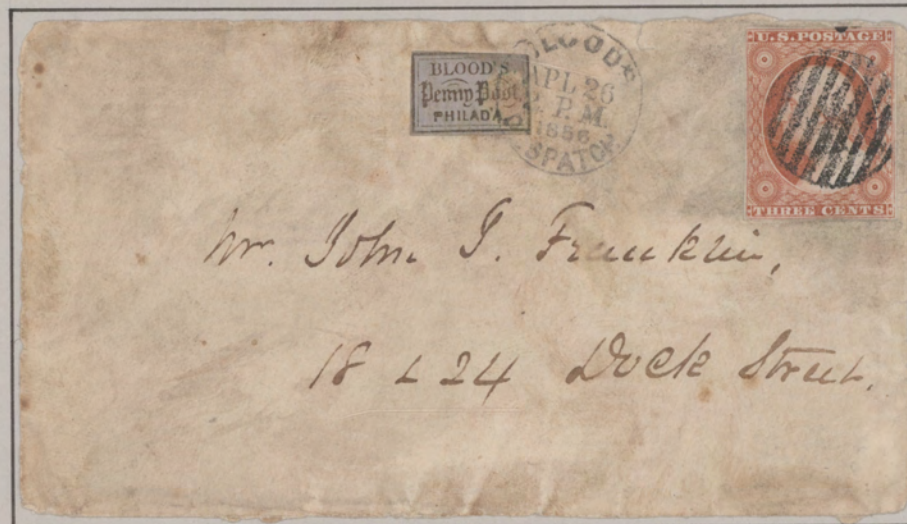 BLOOD'S
Penny Post
PHILAD'A
BLOOD'S
APL 26
P.M.
1856
DESPATCH
U.S. POSTAGE
THREE CENTS
Mr. John J. Franklin,
18 & 24 Dock Street.